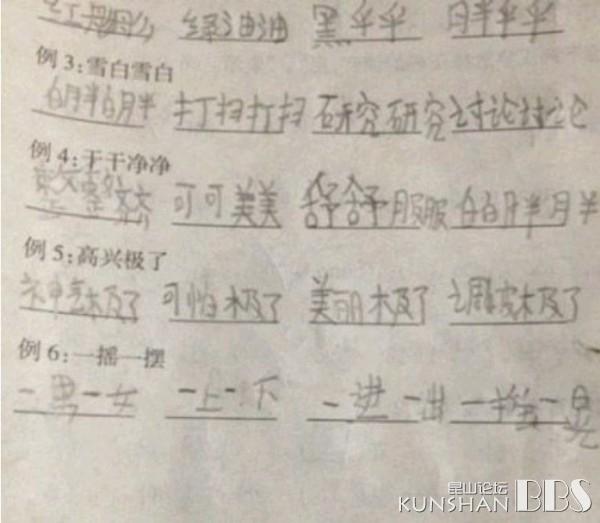 绿油油 黑乎乎 胖乎乎
例3:雪白雪白
白胖白胖 打扫打扫 研究研究 讨论讨论
例4:干干净净
可可美美 舒舒服服 白白胖胖
例5:高兴极了
神气极了 可怕极了 美丽极了 调皮极了
例6:一摇一摆
一男一女 一上一下 一进一出
昆山论坛
KUNSHAN BBS